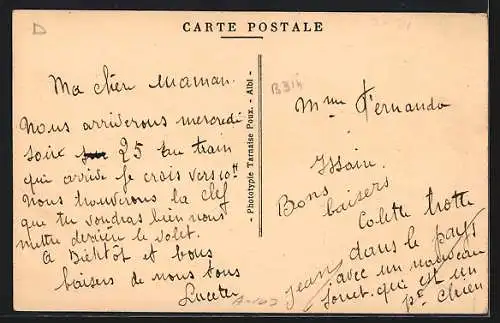 CARTE POSTALE
D
Ma cher maman.
Nous arriverons mercredi
soir 25 au train
qui arrive je crois vers 10H
Nous trouverons la clef
que tu voudras bien nous
mettre derrière le volet.
A Bientôt et bons
baisers de nous tous
Lucette
- Phototypie Tarnaise Poux. - Albi -
B316
Mme Fernando
Issoir.
Bons
baisers
Colette trotte
dans le pays
avec un nouveau
jouet. qui est un
pt chien
Jean